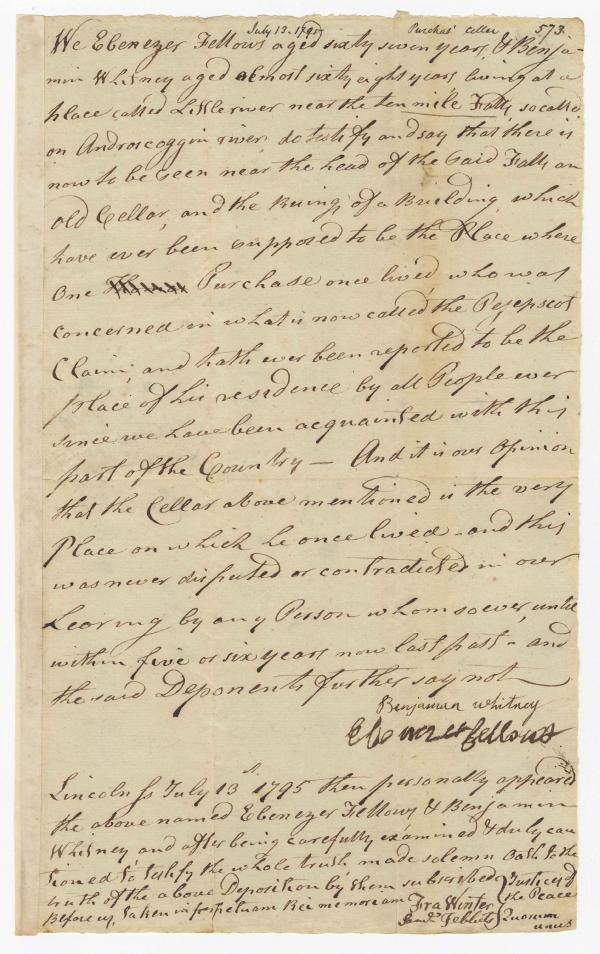 July 13. 1795 Purchas' celler 573.
We Ebenezer Fellows aged sixty seven years, & Benja-
min Whitney aged almost sixty eight years living at a
place called Little river near the ten mile Falls so called
on Androscoggin river, do testify and say that there is
now to be seen near the head of the Said Falls an
old Cellar, and the Ruins of a Building which
have ever been supposed to be the Place where
One Purchase once lived, who was
concerned in what is now called the Pejepscot
Claim, and hath ever been reported to be the
place of his residence by all People ever
since we have been acquainted with this
part of the Country — And it is our Opinion
that the Cellar above mentioned is the very
Place on which he once lived - and this
was never disputed or contradicted in our
Hearing by any Person whomsoever, until
within five or six years now last past - and
the said Deponents further say not
Benjaman Whitney
Ebenezer Fellows
Lincoln ss July 13th 1795 then personally appeared
the above named Ebenezer Fellows & Benjamin
Whitney and after being carefully examined & duly cau
tioned to testify the whole truth made solemn Oath to the
truth of the above Deposition by them subscribed
Before us, taken in perpetuam Rei memoriam
Fra Winter
Saml. Tebbets
Justices of
the Peace
Quorum
unus